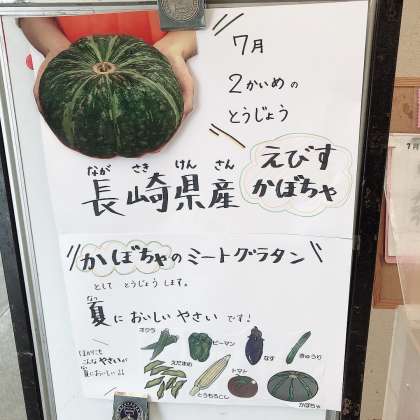 7月
2かいめの
とうじょう
なが さき けん さん
長崎県産
えびす
かぼちゃ
かぼちゃのミートグラタン
として とうじょう します。
なつ
夏に おいしい やさい です!
ほかにも
こんな やさいが
夏においしいよ
オクラ
ピーマン
なす
きゅうり
えだまめ
とうもろこし
トマト
かぼちゃ